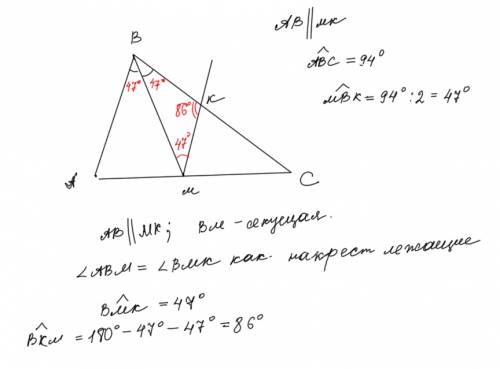 B
AB||MK
ABC = 94°
47° 47°
K
86°
MBK = 94° : 2 = 47°
47°
A
M
C
AB||MK; BM - секущая.
∠ABM = ∠BMK как накрест лежащие
BMK = 47°
BKM = 180° - 47° - 47° = 86°